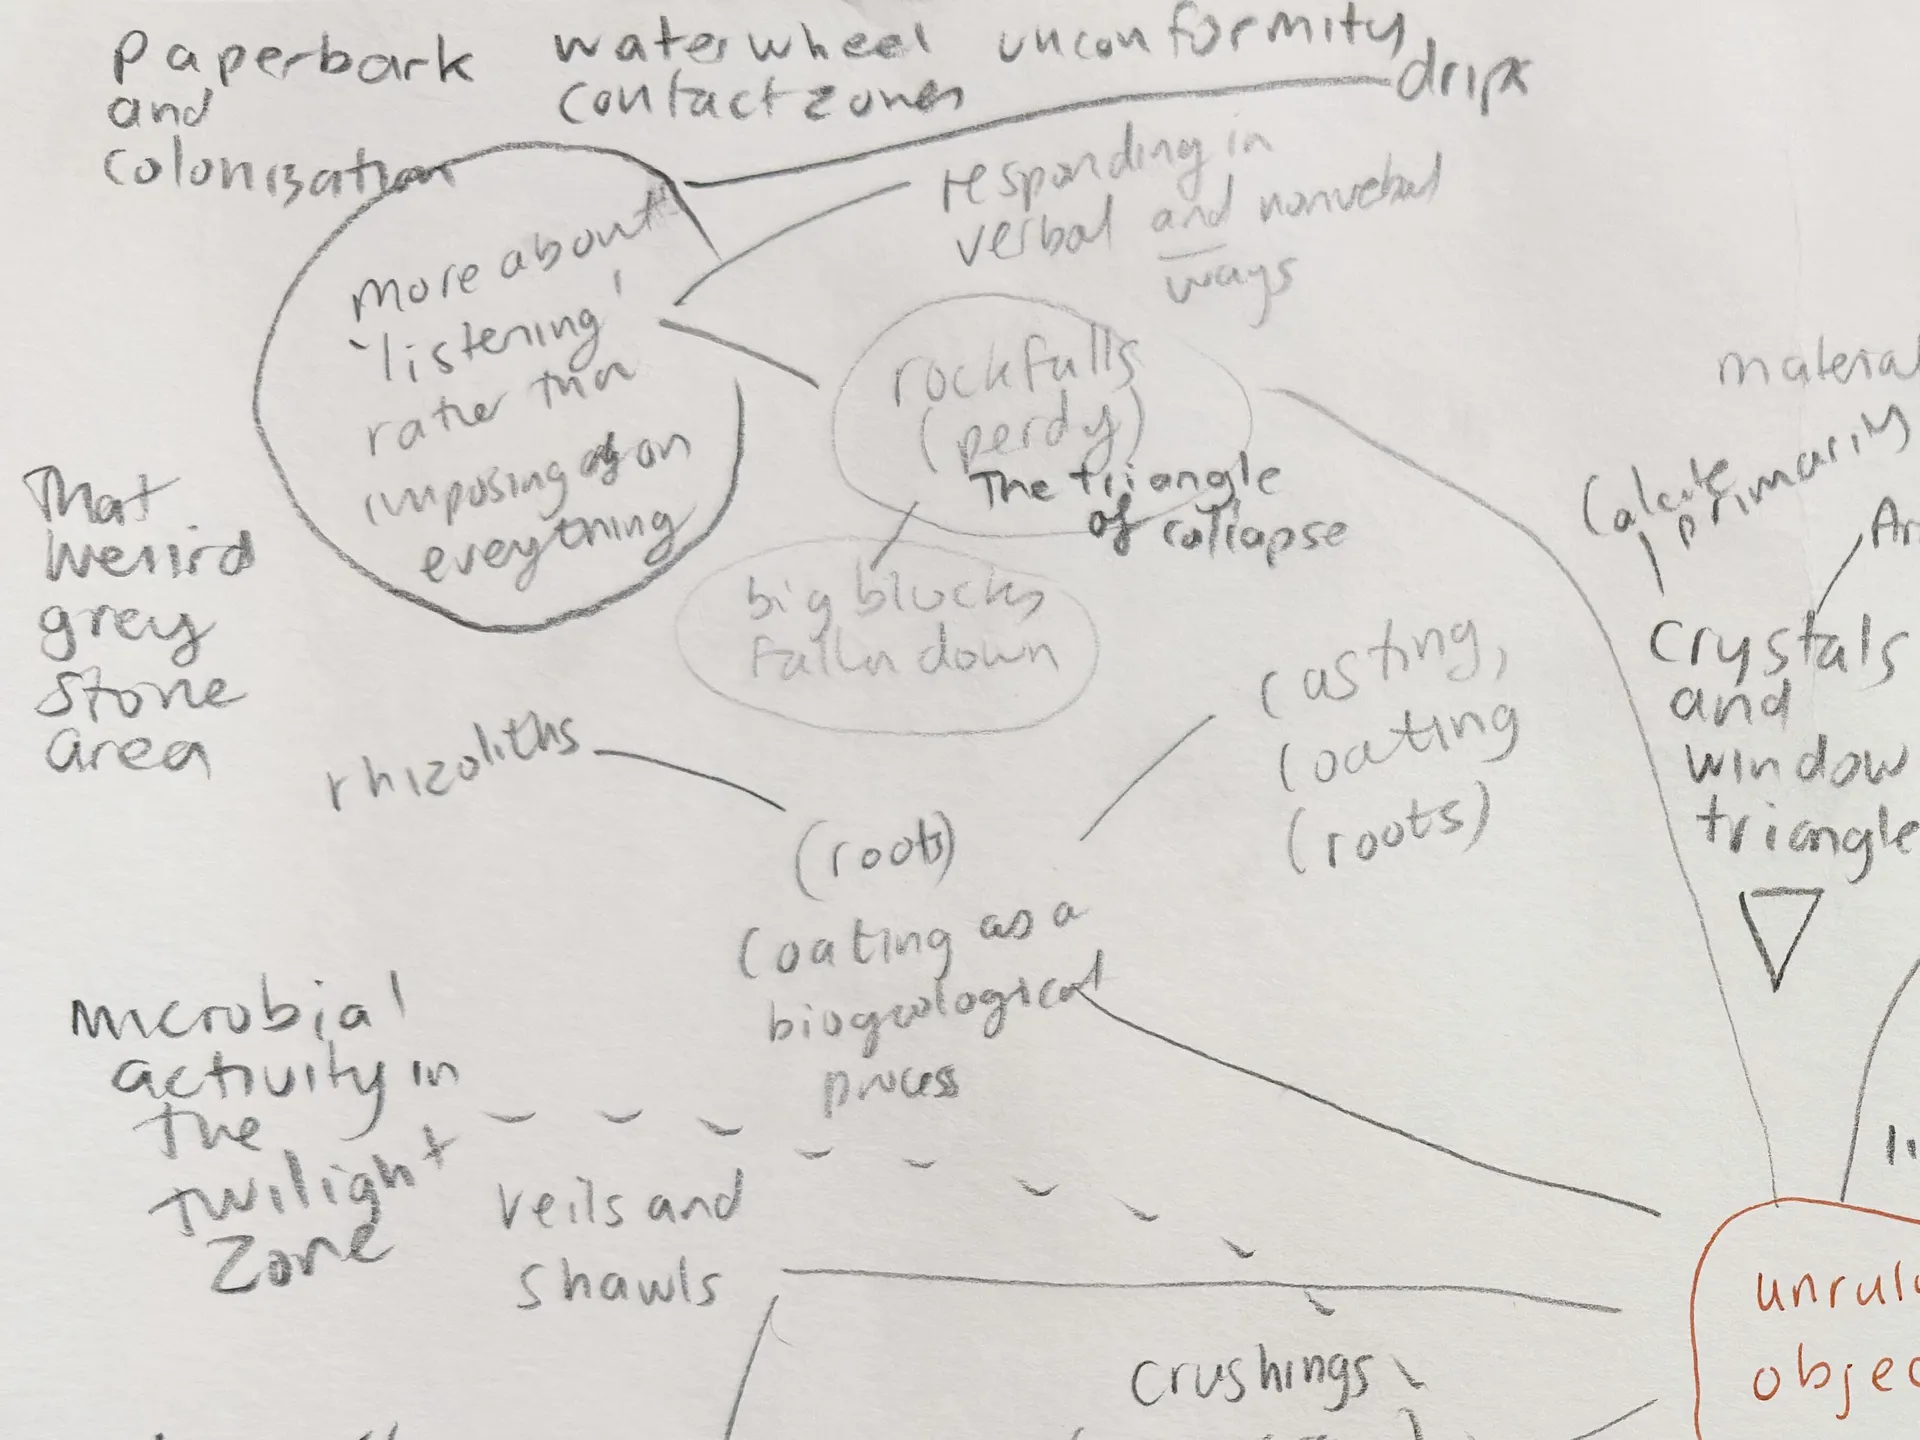 paperbark
and
colonisation
waterwheel unconformity
contact zones
drips
responding in
verbal and nonverbal
ways
more about
'listening'
rather than
imposing on
everything
rockfalls
(perdy)
The triangle
of collapse
big blocks
fallen down
That
weird
grey
stone
area
material
calcite
primarily
crystals
and
window
triangle
rhizoliths
casting,
coating
(roots)
(roots)
coating as a
biogeological
process
microbial
activity in
the
twilight
zone
veils and
shawls
crushings
unruly
objec